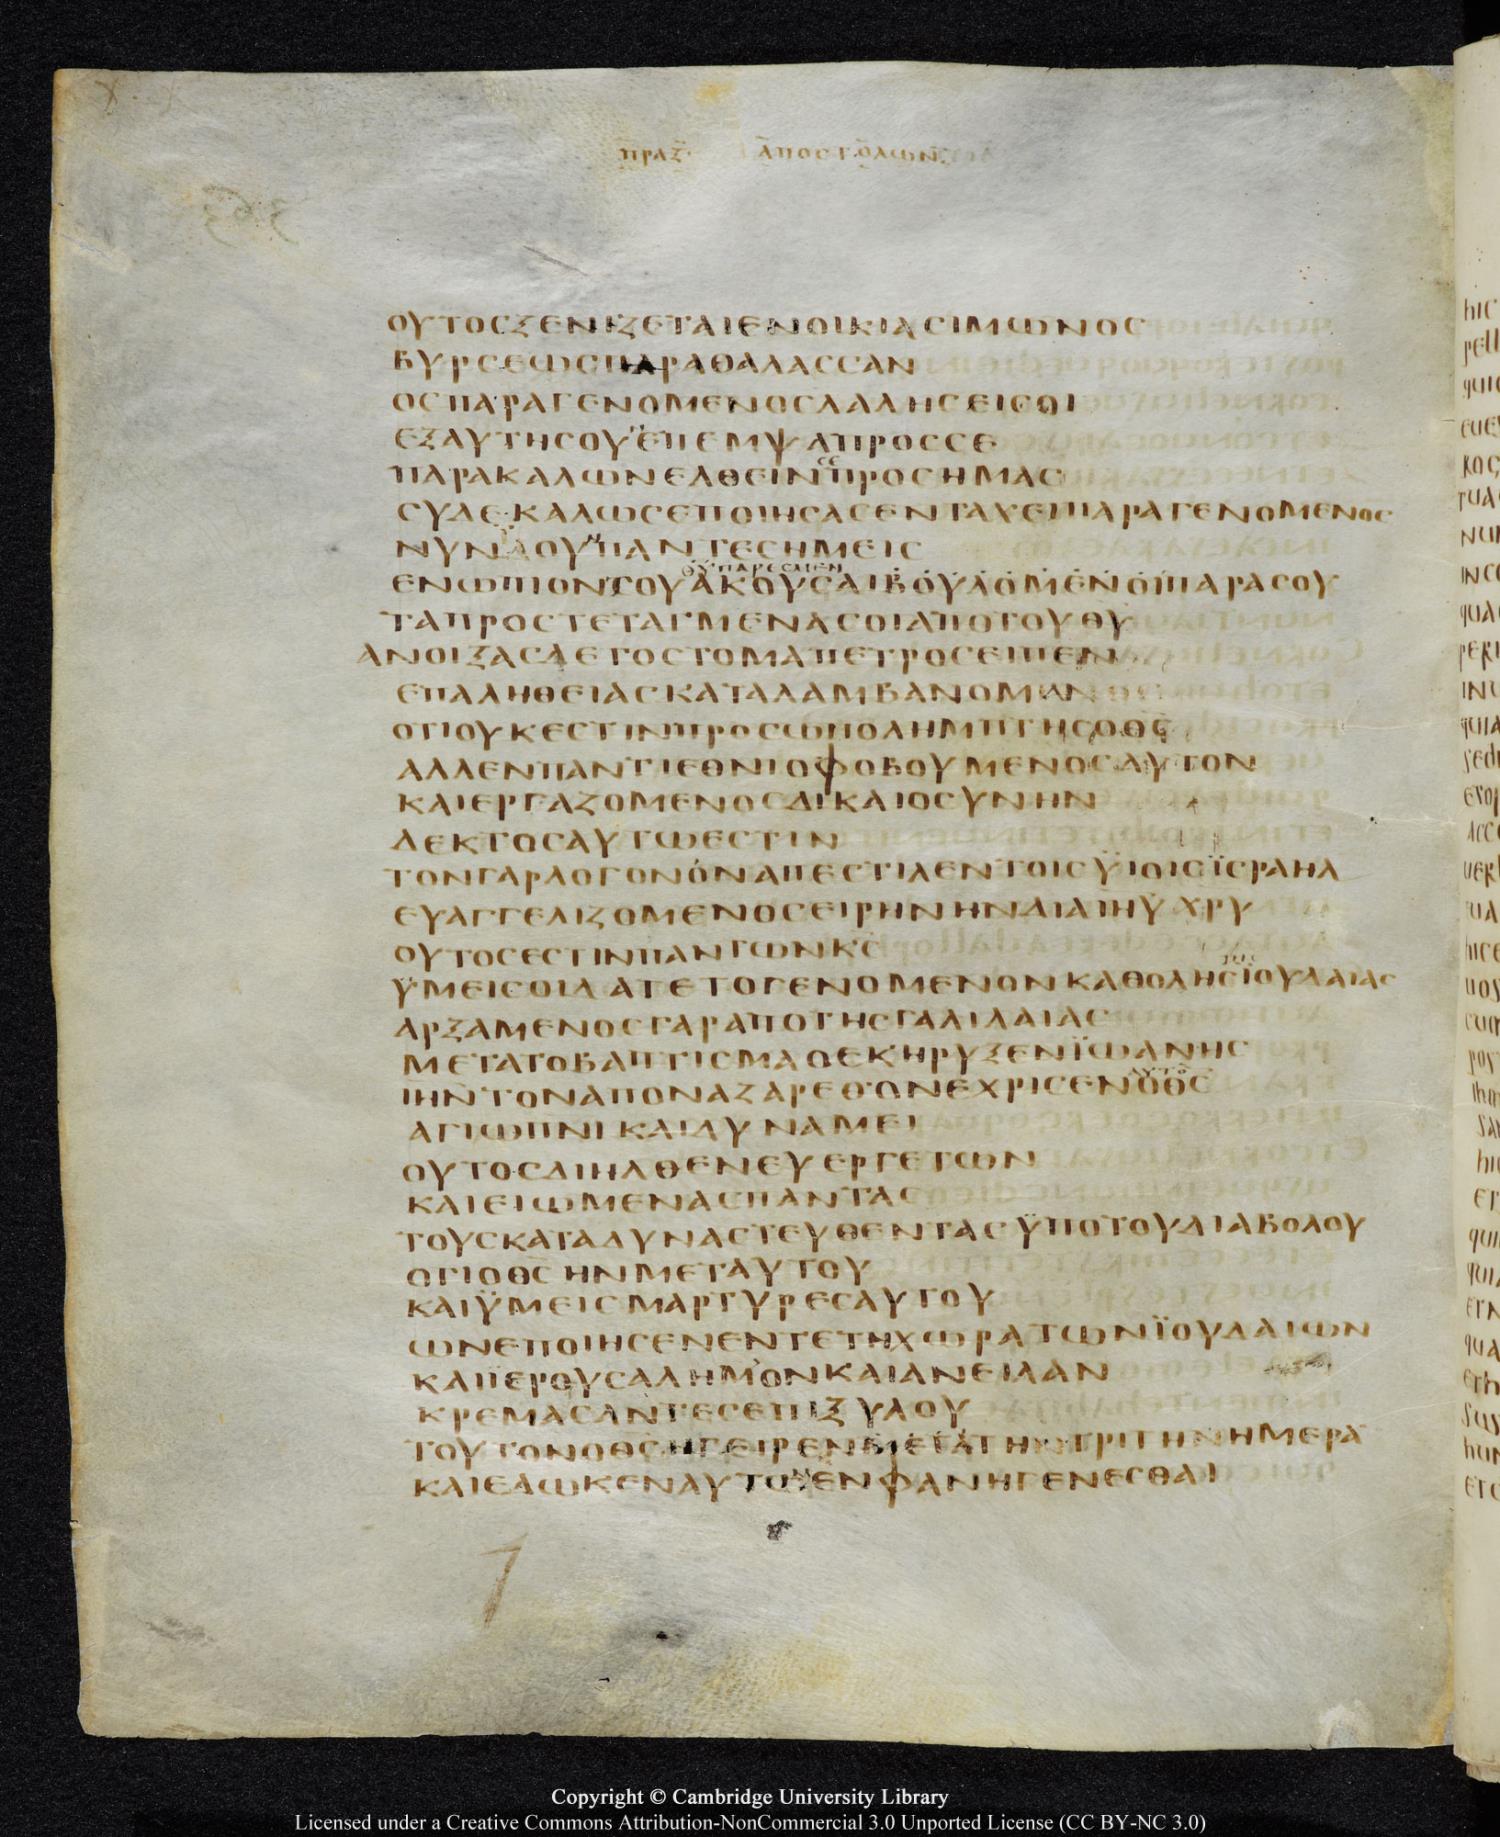 ΠΡΑΞ ΑΠΟΣΤΟΛΩΝ
ΟΥΤΟΣΞΕΝΙΖΕΤΑΙΕΝΟΙΚΙΑΣΙΜΩΝΟΣ
ΒΥΡΣΕΩΣΠΑΡΑΘΑΛΑΣΣΑΝ
ΟΣΠΑΡΑΓΕΝΟΜΕΝΟΣΛΑΛΗΣΕΙΣΟΙ
ΕΞΑΥΤΗΣΟΥΕΠΕΜΨΑΠΡΟΣΣΕ
ΠΑΡΑΚΑΛΩΝΕΛΘΕΙΝΠΡΟΣΗΜΑΣ
ΣΥΔΕΚΑΛΩΣΕΠΟΙΗΣΑΣΕΝΤΑΧΕΙΠΑΡΑΓΕΝΟΜΕΝΟΣ
ΝΥΝΙΔΟΥΠΑΝΤΕΣΗΜΕΙΣ
ΕΝΩΠΙΟΝΣΟΥΑΚΟΥΣΑΙΒΟΥΛΟΜΕΝΟΙΠΑΡΑΣΟΥ
ΤΑΠΡΟΣΤΕΤΑΓΜΕΝΑΣΟΙΑΠΟΤΟΥΘΥ
ΑΝΟΙΞΑΣΔΕΤΟΣΤΟΜΑΠΕΤΡΟΣΕΙΠΕΝ
ΕΠΑΛΗΘΕΙΑΣΚΑΤΑΛΑΜΒΑΝΟΜΑΝΟΣ
ΟΤΙΟΥΚΕΣΤΙΝΠΡΟΣΩΠΟΛΗΜΠΤΗΣΟΘΣ
ΑΛΛΕΝΠΑΝΤΙΕΘΝΙΟΦΟΒΟΥΜΕΝΟΣΑΥΤΟΝ
ΚΑΙΕΡΓΑΖΟΜΕΝΟΣΔΙΚΑΙΟΣΥΝΗΝ
ΔΕΚΤΟΣΑΥΤΩΕΣΤΙΝ
ΤΟΝΓΑΡΛΟΓΟΝΟΝΑΠΕΣΤΙΛΕΝΤΟΙΣΫΙΟΙΣΪΣΡΑΗΛ
ΕΥΑΓΓΕΛΙΖΟΜΕΝΟΣΕΙΡΗΝΗΝΔΙΑΙΗΥΧΡΥ
ΟΥΤΟΣΕΣΤΙΝΠΑΝΤΩΝΚΣ
ΫΜΕΙΣΟΙΔΑΤΕΤΟΓΕΝΟΜΕΝΟΝΚΑΘΟΛΗΣΪΟΥΔΑΙΑΣ
ΑΡΞΑΜΕΝΟΣΓΑΡΑΠΟΤΗΣΓΑΛΙΛΑΙΑΣ
ΜΕΤΑΤΟΒΑΠΤΙΣΜΑΟΕΚΗΡΥΞΕΝΪΩΑΝΗΣ
ΙΗΝΤΟΝΑΠΟΝΑΖΑΡΕΘΟΝΕΧΡΙΣΕΝΟΘΣ
ΑΓΙΩΠΝΙΚΑΙΔΥΝΑΜΕΙ
ΟΥΤΟΣΔΙΗΛΘΕΝΕΥΕΡΓΕΤΩΝ
ΚΑΙΕΙΩΜΕΝΑΣΠΑΝΤΑΣ
ΤΟΥΣΚΑΤΑΔΥΝΑΣΤΕΥΘΕΝΤΑΣΫΠΟΤΟΥΔΙΑΒΟΛΟΥ
ΟΤΙΟΘΣΗΝΜΕΤΑΥΤΟΥ
ΚΑΙΫΜΕΙΣΜΑΡΤΥΡΕΣΑΥΤΟΥ
ΩΝΕΠΟΙΗΣΕΝΕΝΤΕΤΗΧΩΡΑΤΩΝΪΟΥΔΑΙΩΝ
ΚΑΙΪΕΡΟΥΣΑΛΗΜΟΝΚΑΙΑΝΕΙΛΑΝ
ΚΡΕΜΑΣΑΝΤΕΣΕΠΙΞΥΛΟΥ
ΤΟΥΤΟΝΟΘΣΗΓΕΙΡΕΝΜΕΤΑΤΗΝΤΡΙΤΗΝΗΜΕΡΑ
ΚΑΙΕΔΩΚΕΝΑΥΤΟΝΕΝΦΑΝΗΓΕΝΕΣΘΑΙ
Copyright © Cambridge University Library
Licensed under a Creative Commons Attribution-NonCommercial 3.0 Unported License (CC BY-NC 3.0)